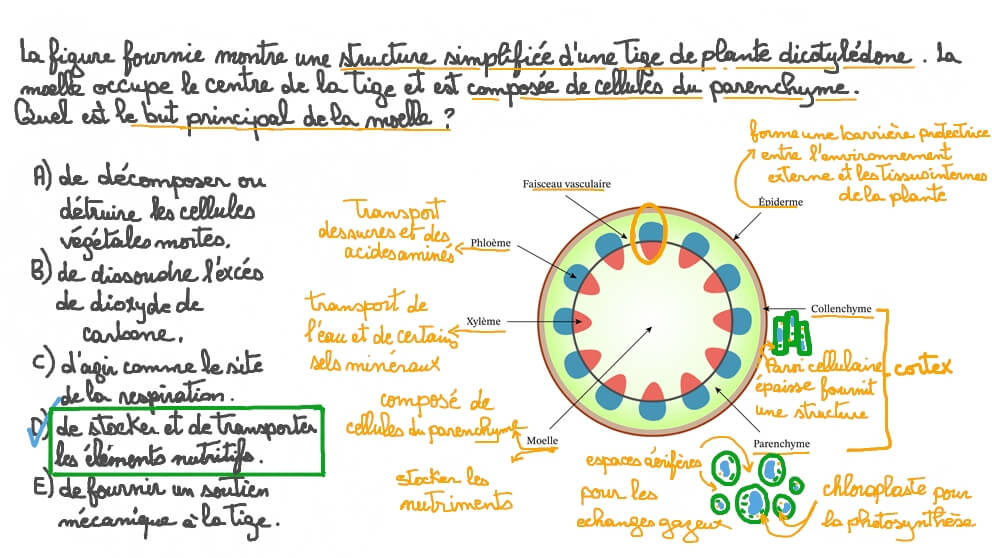 La figure fournie montre une structure simplifiée d'une tige de plante dicotylédone. La
moelle occupe le centre de la tige et est composée de cellules du parenchyme.
Quel est le but principal de la moelle ?
A) de décomposer ou
détruire les cellules
végétales mortes.
B) de dissoudre l'excés
de dioxyde de
carbone.
C) d'agir comme le site
de la respiration.
D) de stocker et de transporter
les éléments nutritifs.
E) de fournir un soutien
mécanique à la tige.
transport
des sucres et des
acides aminés
Phloème
transport de
l'eau et de certains
sels minéraux
Xylème
composé de
cellules du parenchyme
Moelle
stocker les
nutriments
Faisceau vasculaire
forme une barrière protectrice
entre l'environnement
externe et les tissus internes
de la plante
Épiderme
Collenchyme
Paroi cellulaire
épaisse fournit
une structure
cortex
Parenchyme
espaces aérifères
pour les
echanges gazeux
chloroplaste pour
la photosynthèse